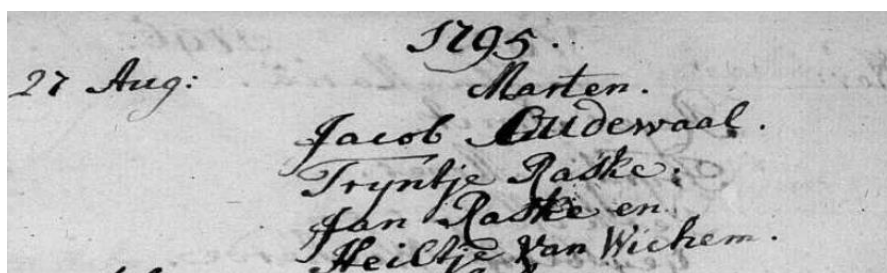 1795.
27 Aug: Marten.
Jacob Oudewaal.
Tryntje Raske.
Jan Raske en
Heiltje Van Wichem.